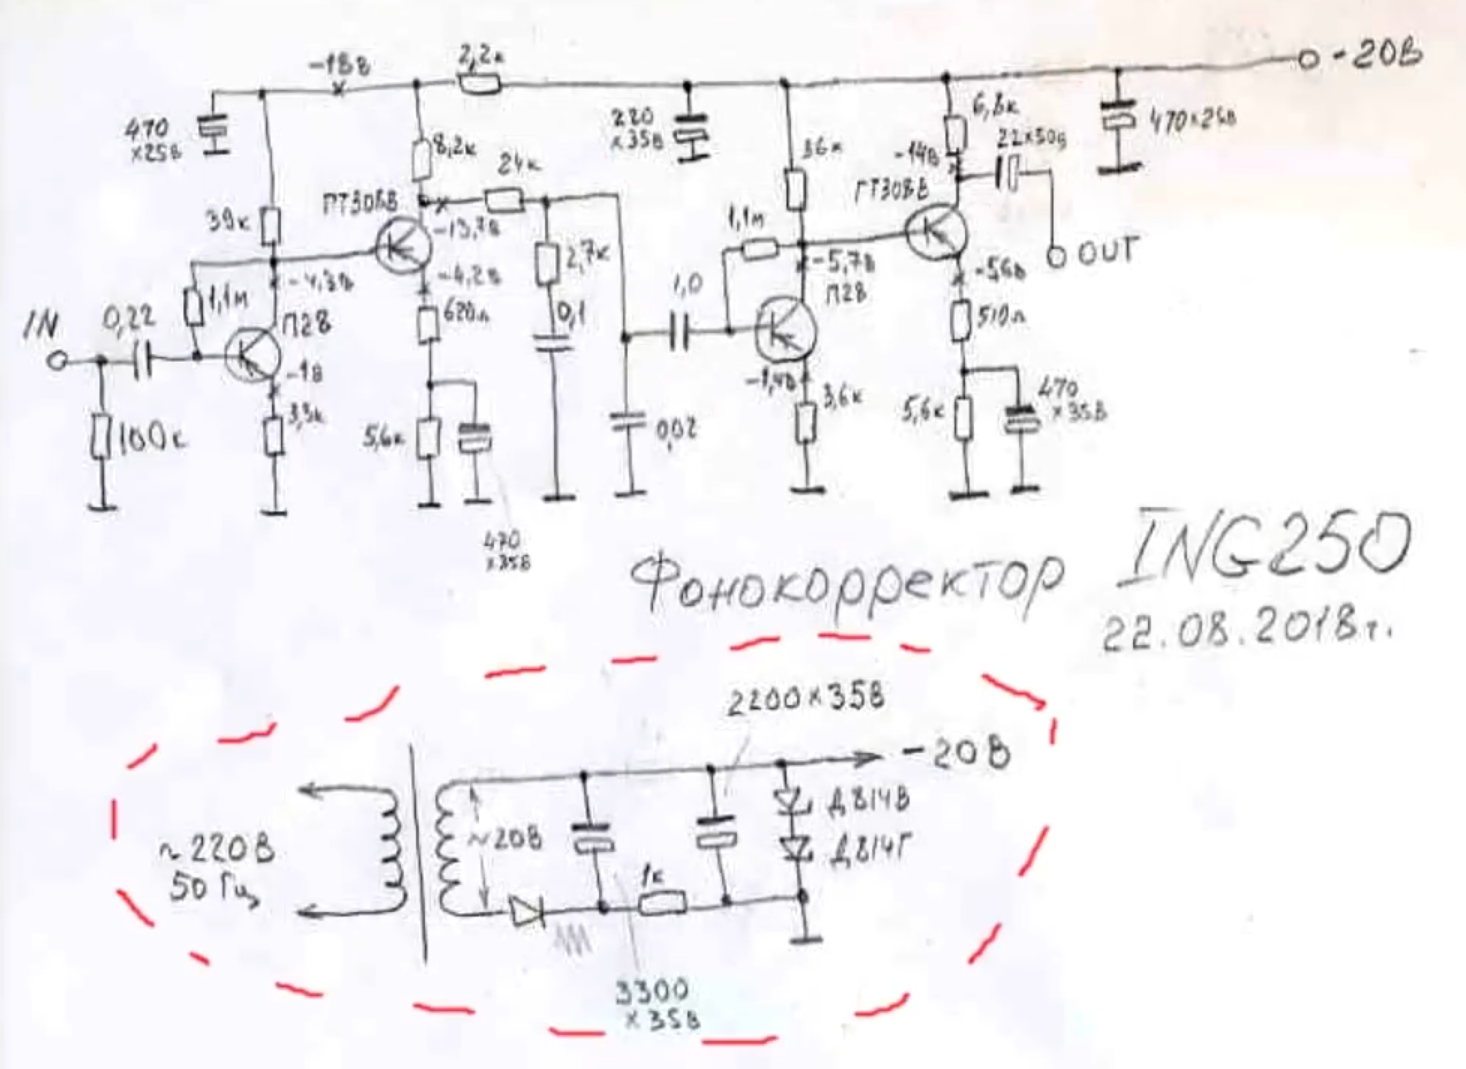 -18В
2,2к
-20В
470
×25В
8,2к
24к
220
×35В
36к
6,8к
22×50В
470×25В
39к
-13,7В
-14В
1,1м
-4,2В
2,7к
1,0
-5,7В
-5,6В
OUT
IN
0,22
1,1м
П28
620л
0,1
П28
510л
-1В
-1,4В
3,6к
100к
3,3к
5,6к
0,02
5,6к
470
×35В
470
×35В
Фонокорректор ING250
22.08.2018г.
2200×35В
-20В
Д814В
Д814Г
~220В
50 Гц
~20В
1к
3300
×35В